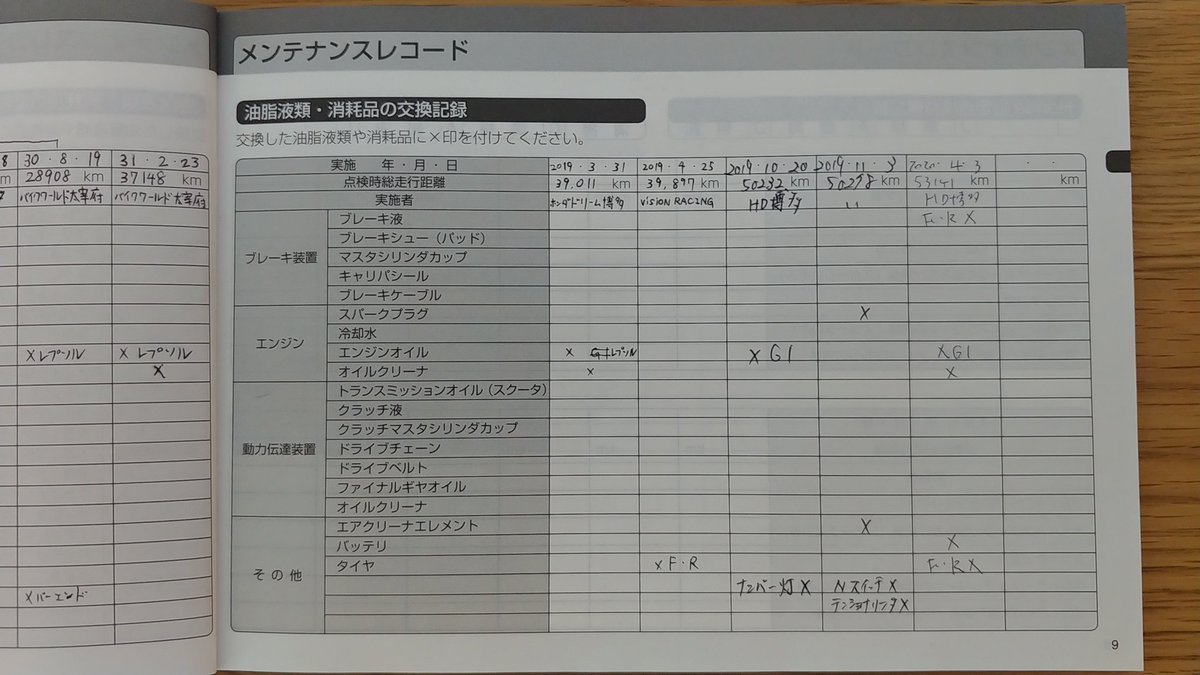 8 30・8・19 31・2・23
m 28908 km 37148 km
バイクワールド太宰府 バイクワールド太宰府
×レプソル × レプソル
×
×バーエンド
メンテナンスレコード
油脂液類・消耗品の交換記録
交換した油脂液類や消耗品に×印を付けてください。
実施 年・月・日 2019・3・31 2019・4・25 2019・10・20 2019・11・3 2020・4・3 ・ ・
点検時総走行距離 39,011 km 39,897 km 50232 km 50298 km 53141 km km
実施者 ホンダドリーム博多 VISION RACING HD博多 〃 HD博多
ブレーキ装置
ブレーキ液 F・R X
ブレーキシュー（パッド）
マスタシリンダカップ
キャリパシール
ブレーキケーブル
エンジン
スパークプラグ X
冷却水
エンジンオイル × レプソル X G1 X G1
オイルクリーナ × X
動力伝達装置
トランスミッションオイル（スクータ）
クラッチ液
クラッチマスタシリンダカップ
ドライブチェーン
ドライブベルト
ファイナルギヤオイル
オイルクリーナ
その他
エアクリーナエレメント X
バッテリ X
タイヤ ×F・R F・R X
ナンバー灯 X Nスイッチ X
テンショナリンク X
9